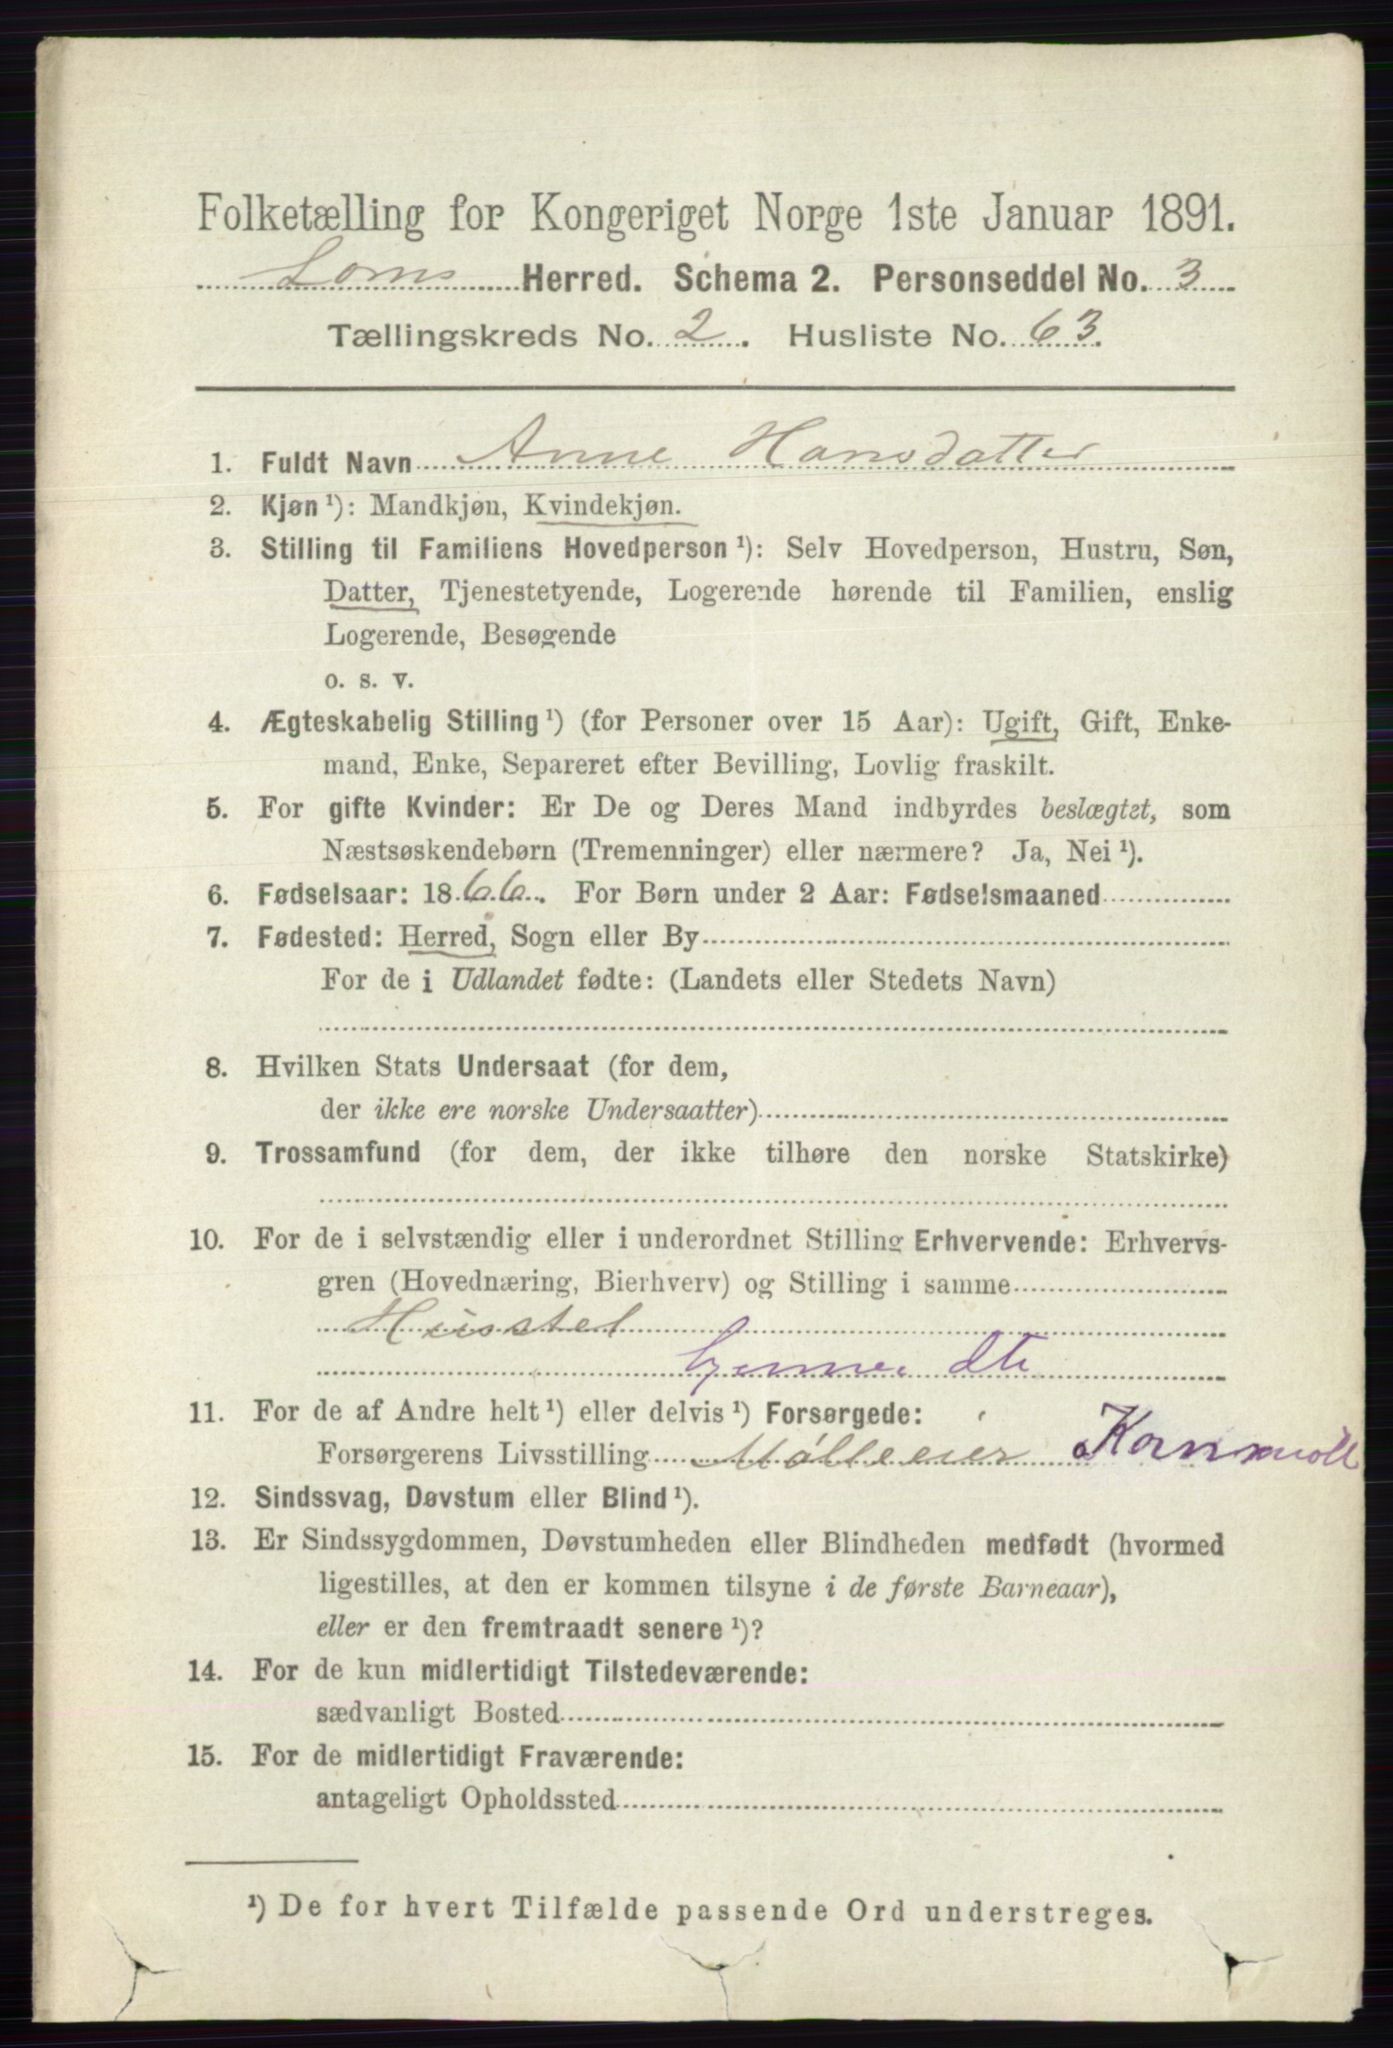 Folketælling for Kongeriget Norge 1ste Januar 1891.
Loms Herred. Schema 2. Personseddel No. 3
Tællingskreds No. 2. Husliste No. 63.
1. Fuldt Navn Anne Hansdatter
2. Kjøn¹): Mandkjøn, Kvindekjøn.
3. Stilling til Familiens Hovedperson¹): Selv Hovedperson, Hustru, Søn,
Datter, Tjenestetyende, Logerende hørende til Familien, enslig
Logerende, Besøgende
o. s. v.
4. Ægteskabelig Stilling¹) (for Personer over 15 Aar): Ugift, Gift, Enke-
mand, Enke, Separeret efter Bevilling, Lovlig fraskilt.
5. For gifte Kvinder: Er De og Deres Mand indbyrdes beslægtet, som
Næstsøskendebørn (Tremenninger) eller nærmere? Ja, Nei¹).
6. Fødselsaar: 1866. For Børn under 2 Aar: Fødselsmaaned
7. Fødested: Herred, Sogn eller By
For de i Udlandet fødte: (Landets eller Stedets Navn)
8. Hvilken Stats Undersaat (for dem,
der ikke ere norske Undersaatter)
9. Trossamfund (for dem, der ikke tilhøre den norske Statskirke)
10. For de i selvstændig eller i underordnet Stilling Erhvervende: Erhvervs-
gren (Hovednæring, Bierhverv) og Stilling i samme
Husstel
11. For de af Andre helt¹) eller delvis¹) Forsørgede:
Forsørgerens Livsstilling Mølleeier Kornmøll
12. Sindssvag, Døvstum eller Blind¹).
13. Er Sindssygdommen, Døvstumheden eller Blindheden medfødt (hvormed
ligestilles, at den er kommen tilsyne i de første Barneaar),
eller er den fremtraadt senere¹)?
14. For de kun midlertidigt Tilstedeværende:
sædvanligt Bosted
15. For de midlertidigt Fraværende:
antageligt Opholdssted
¹) De for hvert Tilfælde passende Ord understreges.